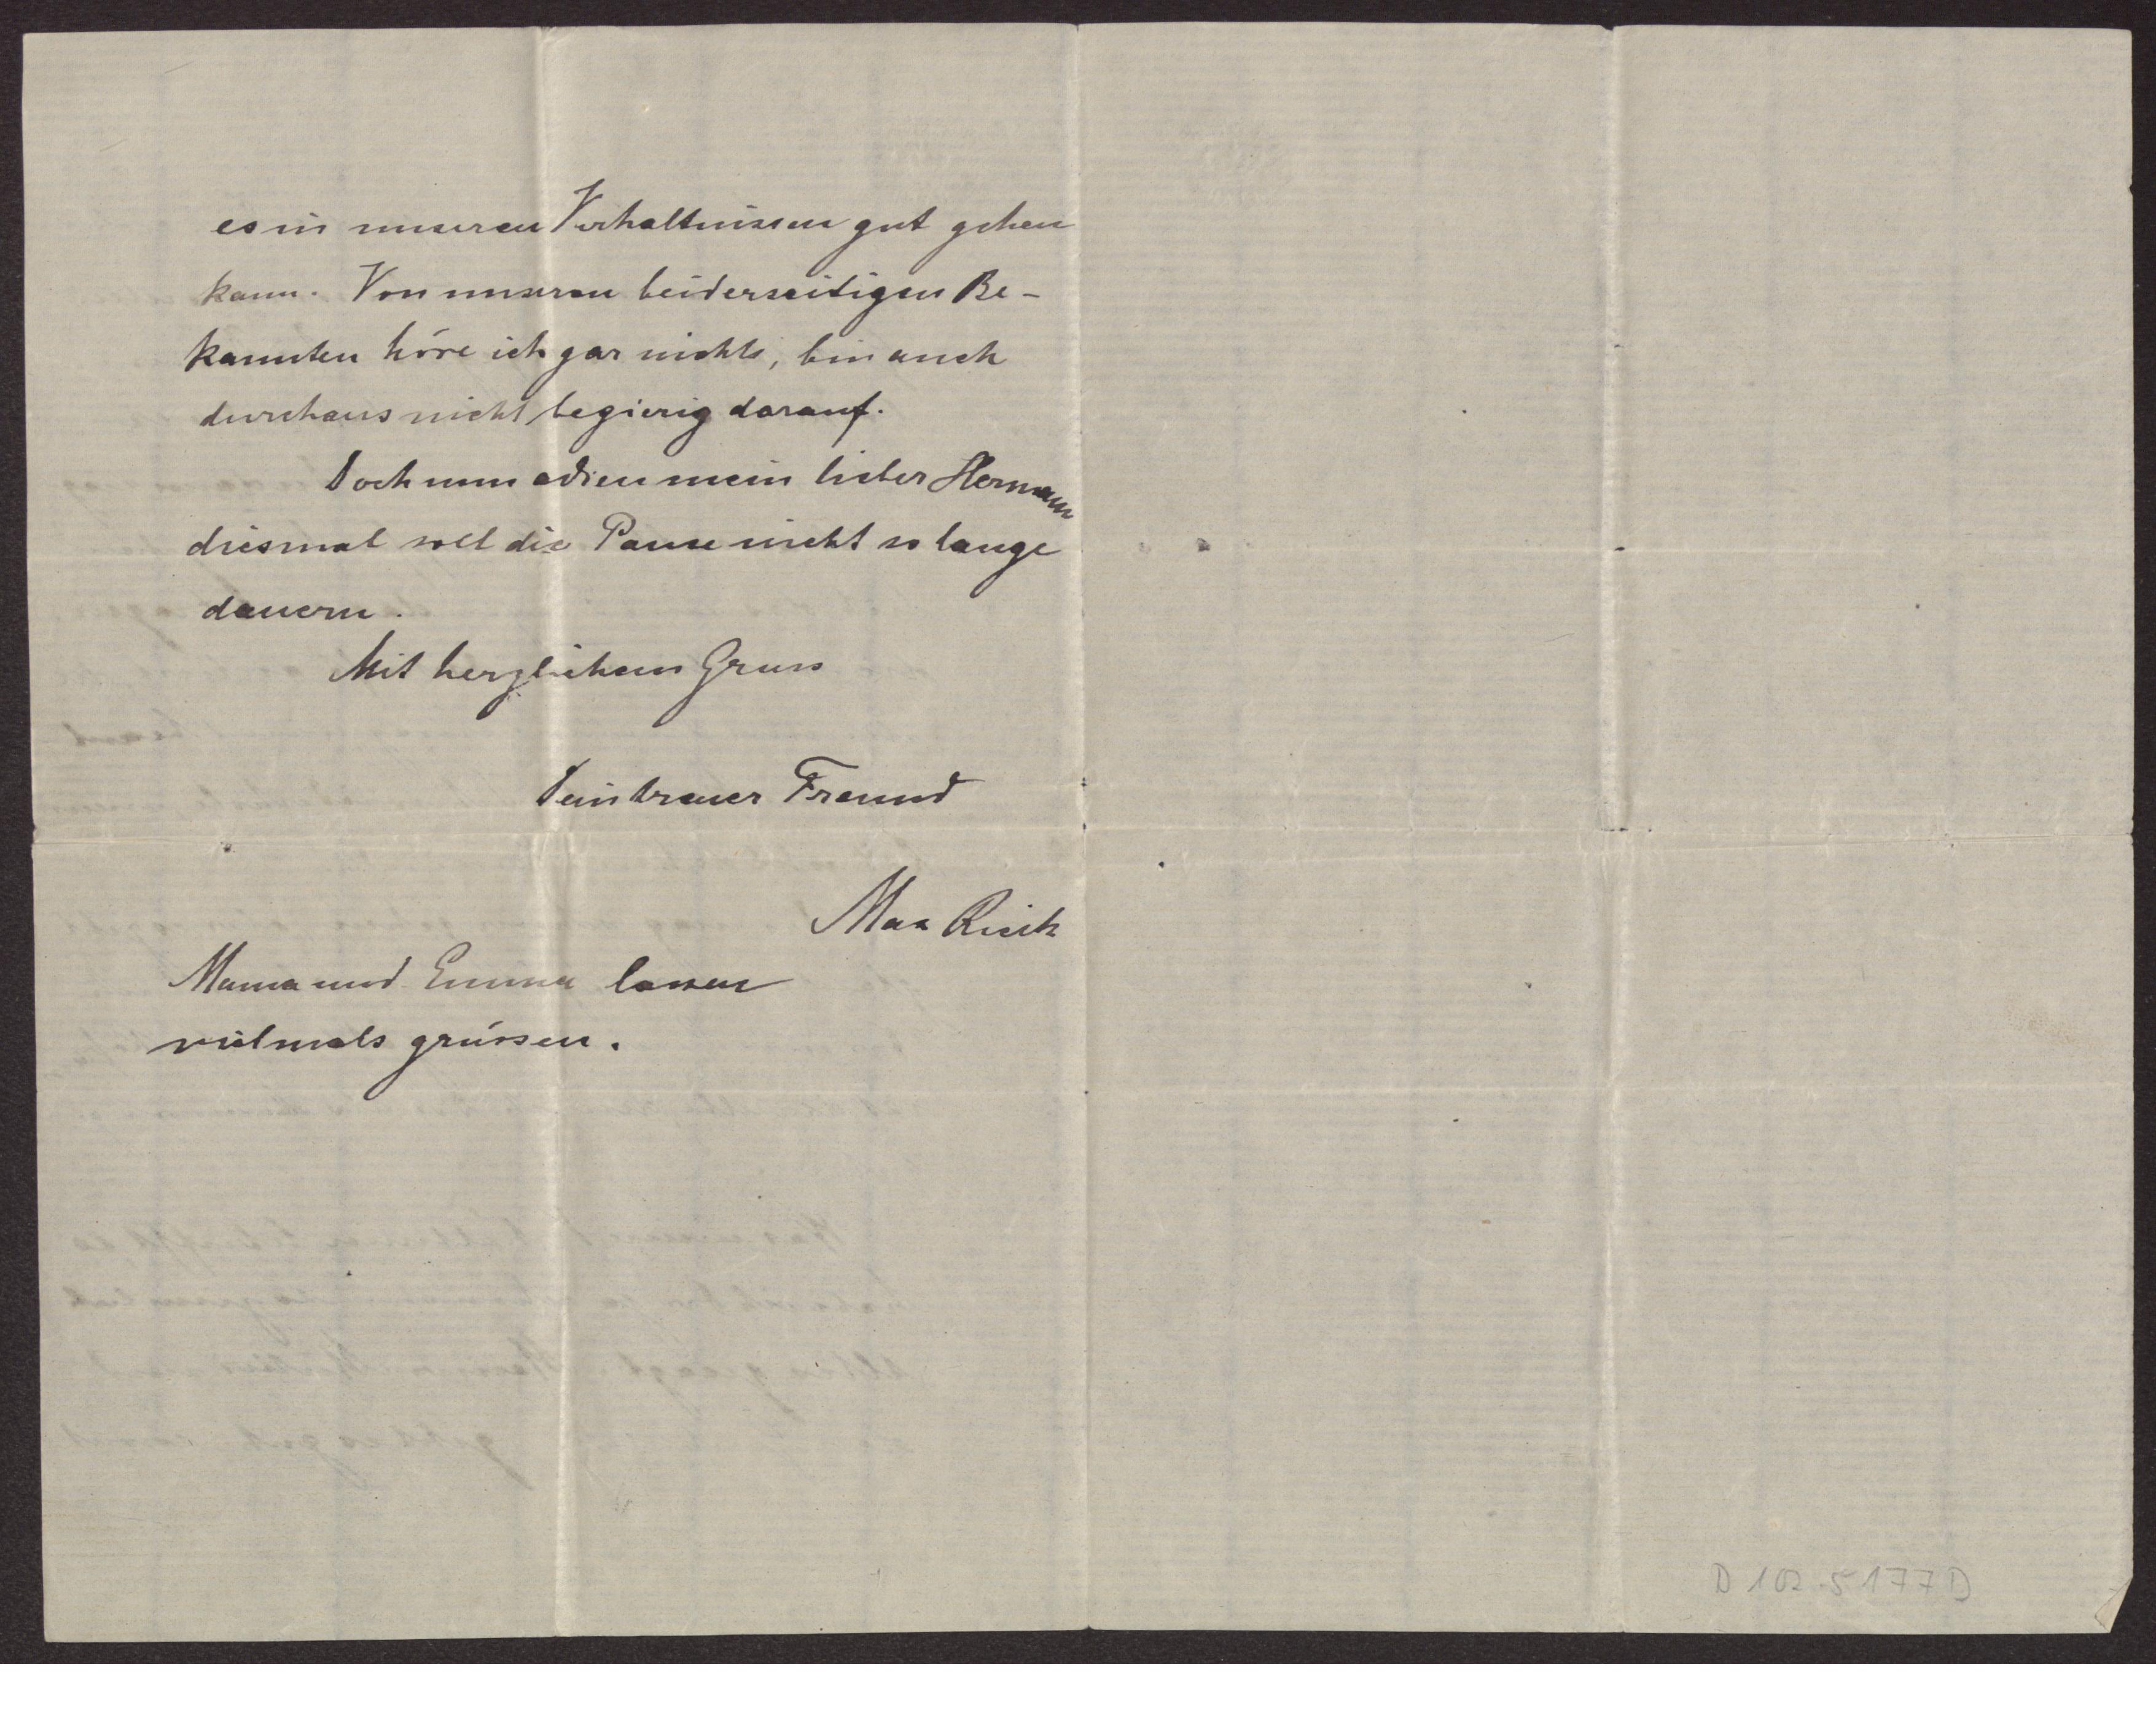 es in unseren Verhältnissen gut gehen
kann. Von unseren beiderseitigen Be-
kannten höre ich gar nichts, bin auch
durchaus nicht begierig darauf.
Doch nun adieu mein lieber Hermann
diesmal soll die Pause nicht so lange
dauern.
Mit herzlichem Gruss
Dein treuer Freund
Max
Mama und Emma lassen
vielmals grüssen.
D 102.5177D